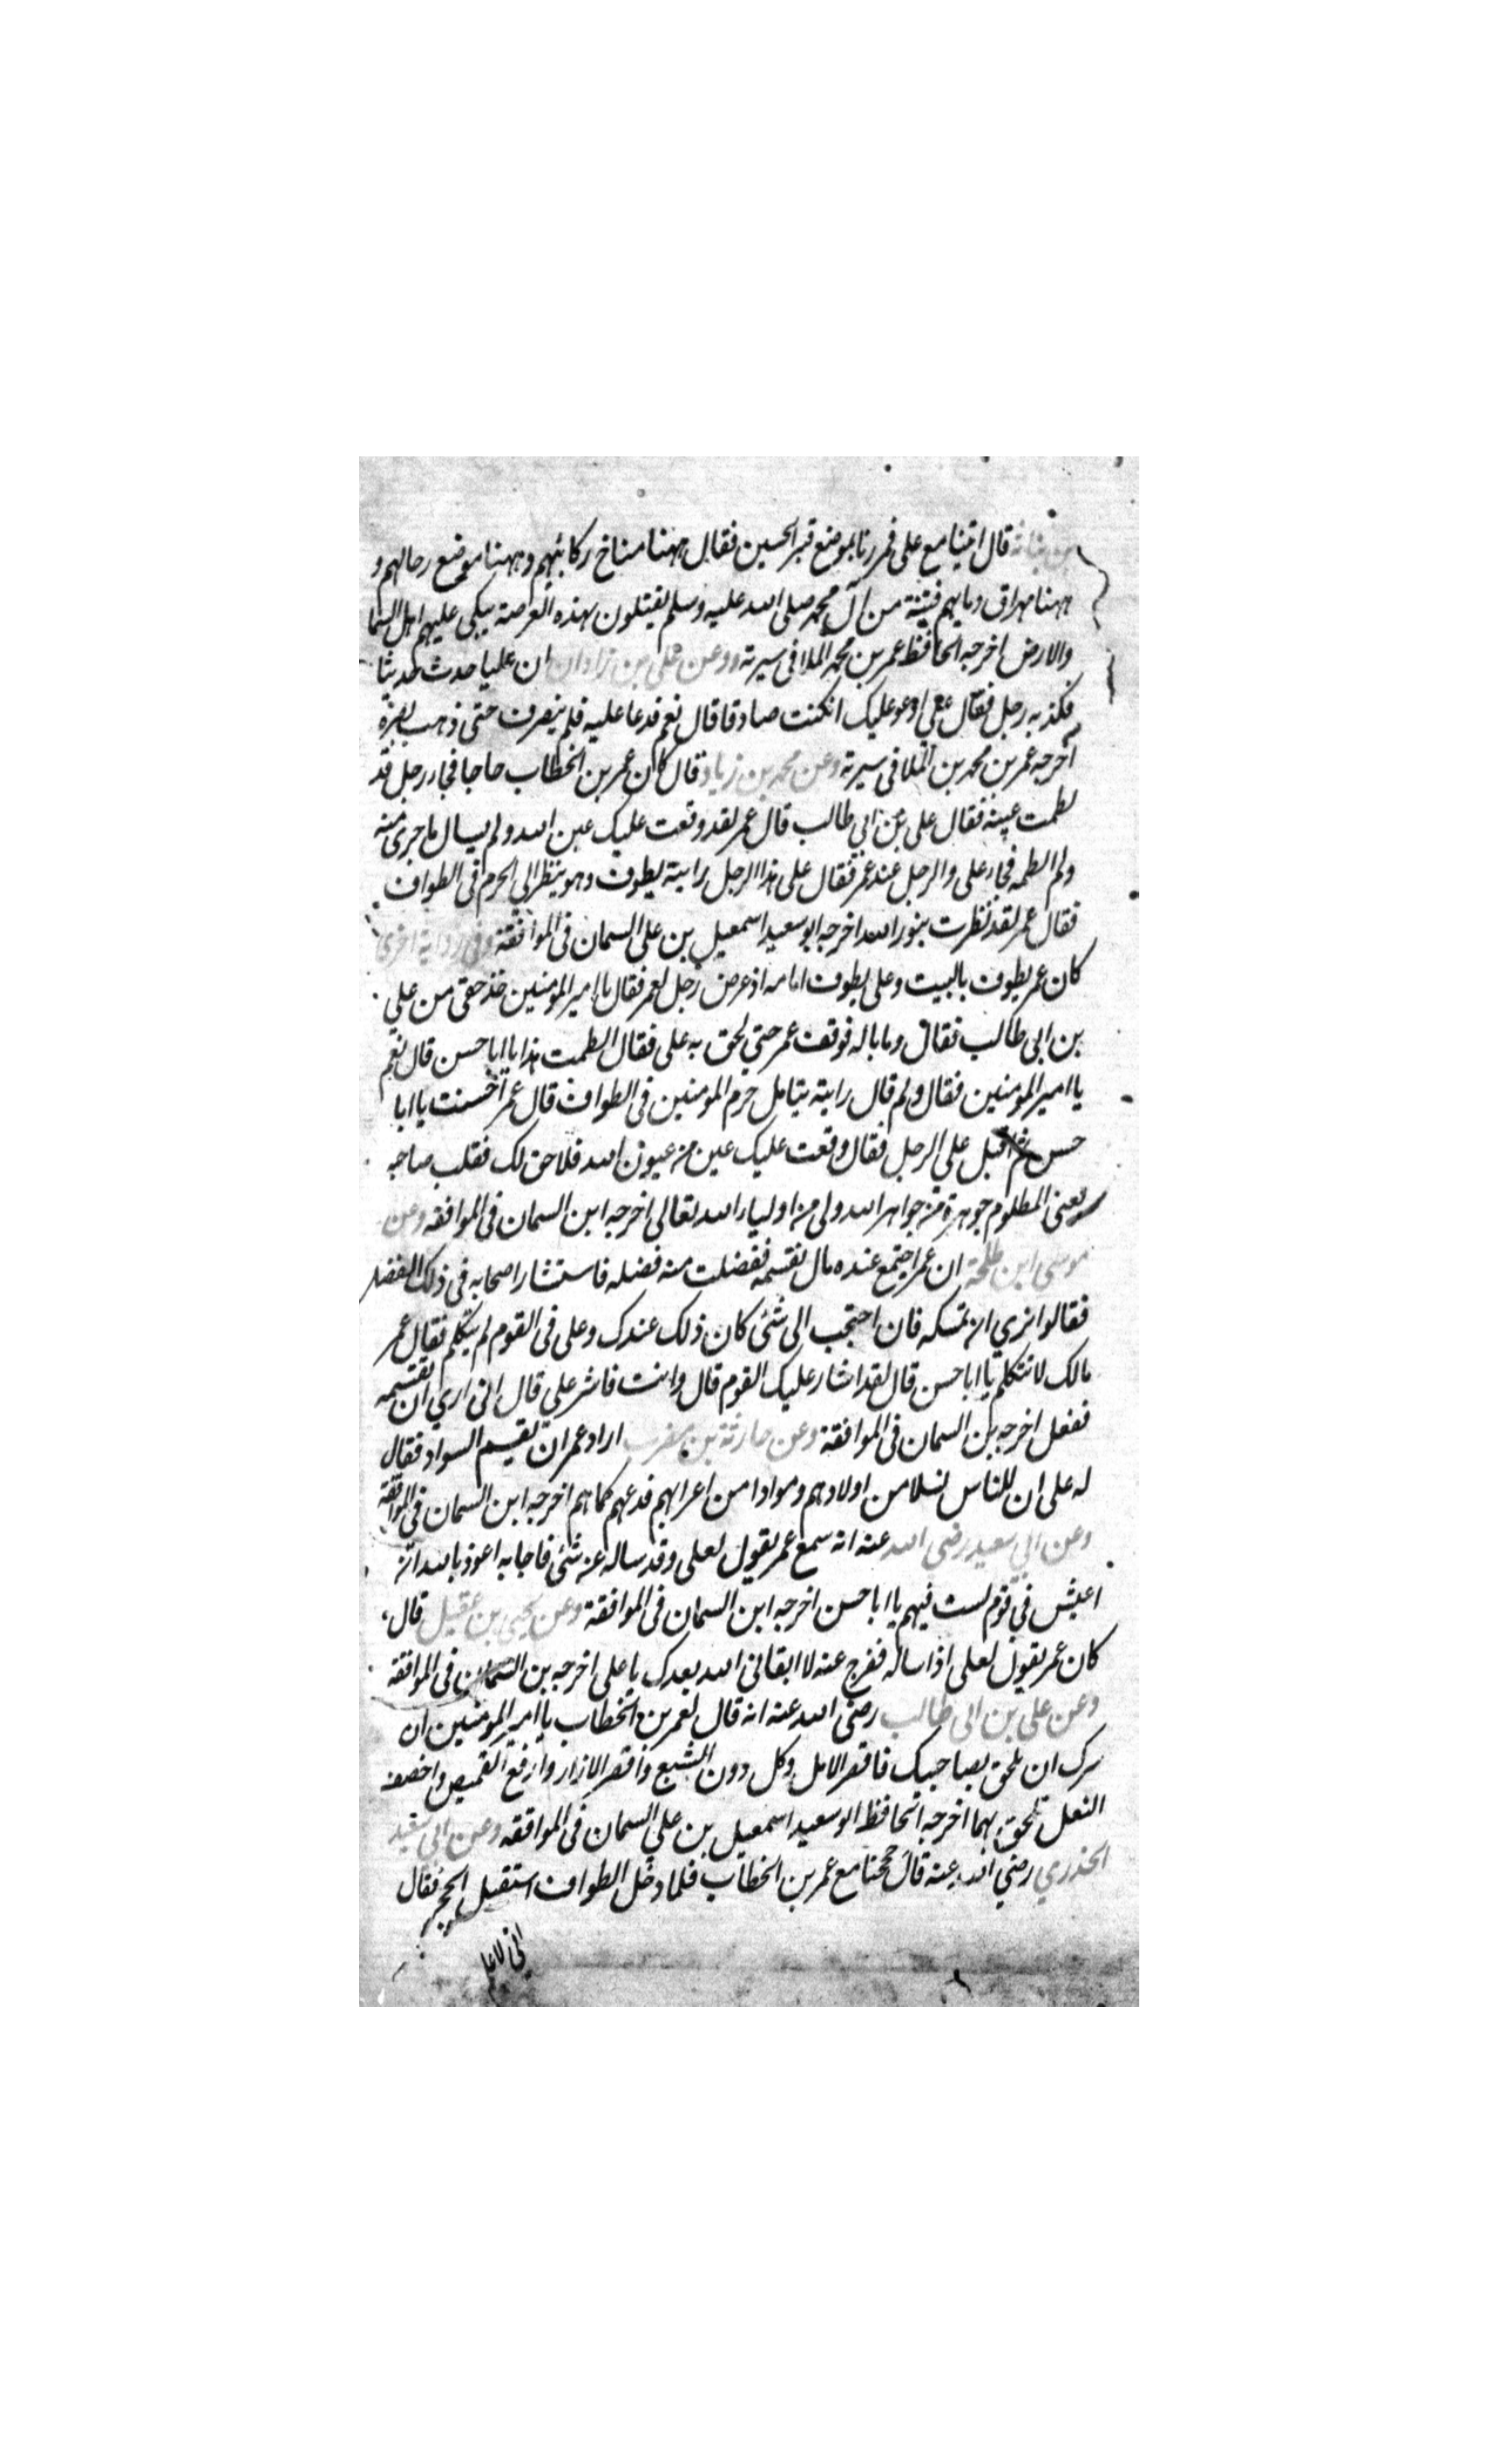 بن نباتة قال اتينا مع على فمررنا بموضع قبر الحسين فقال ههنا مناخ ركائبهم وههنا موضع رحالهم و
ههنا مهراق دمايهم فيتنة من آل محمد صلى الله عليه وسلم يقتلون بهذه العرصة يبكى عليهم اهل السما
والارض اخرجه الحافظ عمر بن محمد الملا فى سيرته وعن على بن زادان ان عليا حدث حديثا
فكذبه رجل فقال على ادعو عليك انكنت صادقا قال نعم فدعا عليه فلم ينصرف حتى ذهب بصره
اخرجه عمر بن محمد بن الملا فى سيرته وعن محمد بن زياد قال كان عمر بن الخطاب حاجا فجاء رجل قد
لطمت عينه فقال على بن ابي طالب قال عمر لقد وقعت عليك عين الله ولم يسال ما جرى منه
ولم الطمه فجاء على والرجل عند عمر فقال على هذا الرجل رايته يطوف وهو ينظر الى الحرم فى الطواف
فقال عمر لقد نظرت بنور الله اخرجه ابو سعيد اسمعيل بن على السمان فى الموافقة وفى رواية اخرى
كان عمر يطوف بالبيت وعلى يطوف امامه اذ عرض رجل لعمر فقال يا امير المومنين خذ حقى من على
بن ابى طالب فقال وما باله فوقف عمر حتي لحق به على فقال الطمت هذا يا ابا حسن قال نعم
يا امير المومنين فقال ولم قال رايته يتامل حرم المومنين فى الطواف قال عمر احسنت يا ابا
حسن ثم اقبل علي الرجل فقال وقعت عليك عين من عيون الله فلا حق لك فقلب صاحبه
يعنى المظلوم جوهرة من جواهر الله ولى من اولياء الله تعالى اخرجه ابن السمان فى الموافقه وعن
موسى ابن طلحة ان عمر اجتمع عنده مال نقسمه ففضلت منه فضله فاستشار اصحابه فى ذلك الفضل
فقالوا نرى ان تمسكه فان احتجب الى شئ كان ذلك عندك وعلى فى القوم لم يتكلم فقال عمر
مالك لا تتكلم يا ابا حسن قال لقد اشار عليك القوم قال وانت فاشر علي قال انى اري ان تقسمه
ففعل اخرجه بن السمان فى الموافقة وعن حارثة بن مضرب اراد عمر ان تقسيم السواد فقال
له على ان للناس نسلا من اولادهم وموادا من اعرابهم فدعهم كما هم اخرجه ابن السمان فى الموافقة
وعن ابي سعيد رضى الله عنه انه سمع عمر يقول لعلى وقد ساله عن شئ فاجابه اعوذ بالله ان
اعيش في قوم لست فيهم يا ابا حسن اخرجه ابن السمان فى الموافقة وعن يحيى بن عقيل قال،
كان عمر يقول لعلى اذا ساله ففرج عنه لا ابقانى الله بعدك يا على اخرجه بن السمان فى الموافقة
وعن على بن ابى طالب رضى الله عنه انه قال لعمر بن الخطاب يا امير المومنين ان
سرك ان تلحق بصاحبيك فاقصر الامل وكل دون الشبع واقصر الازار وارفع القميص واخصف
النعل تلحق بهما اخرجه الحافظ ابو سعيد اسمعيل بن على السمان فى الموافقه وعن ابى سعيد
الخدري رضي الله عنه قال حججنا مع عمر بن الخطاب فلما دخل الطواف استقبل الحجر فقال
انى لاعلم